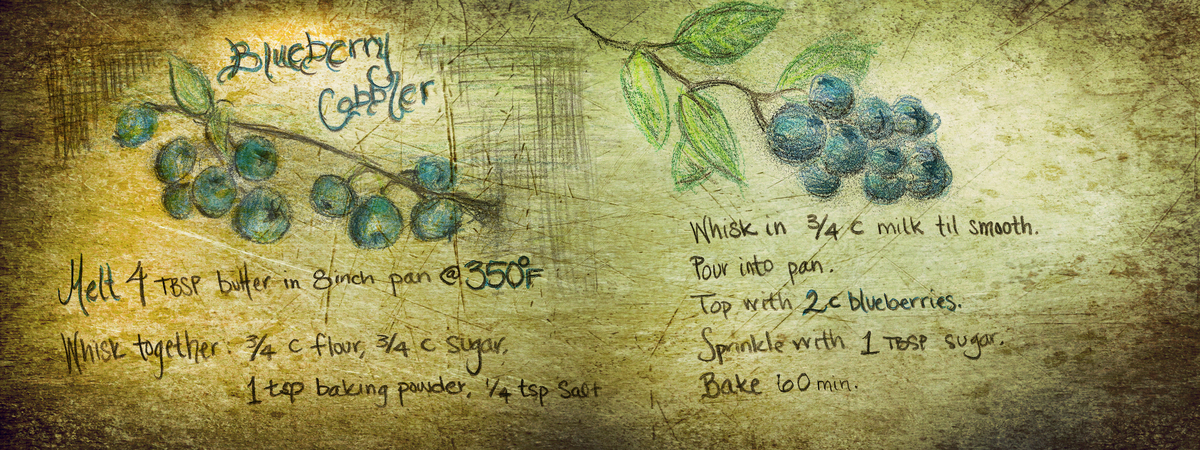 Blueberry
Cobbler
Melt 4 TBSP butter in 8inch pan @ 350°F
Whisk together: 3/4 c flour, 3/4 c sugar,
1 tsp baking powder, 1/4 tsp Salt
Whisk in 3/4 c milk til smooth.
Pour into pan.
Top with 2 c blueberries.
Sprinkle with 1 TBSP sugar.
Bake 60 min.